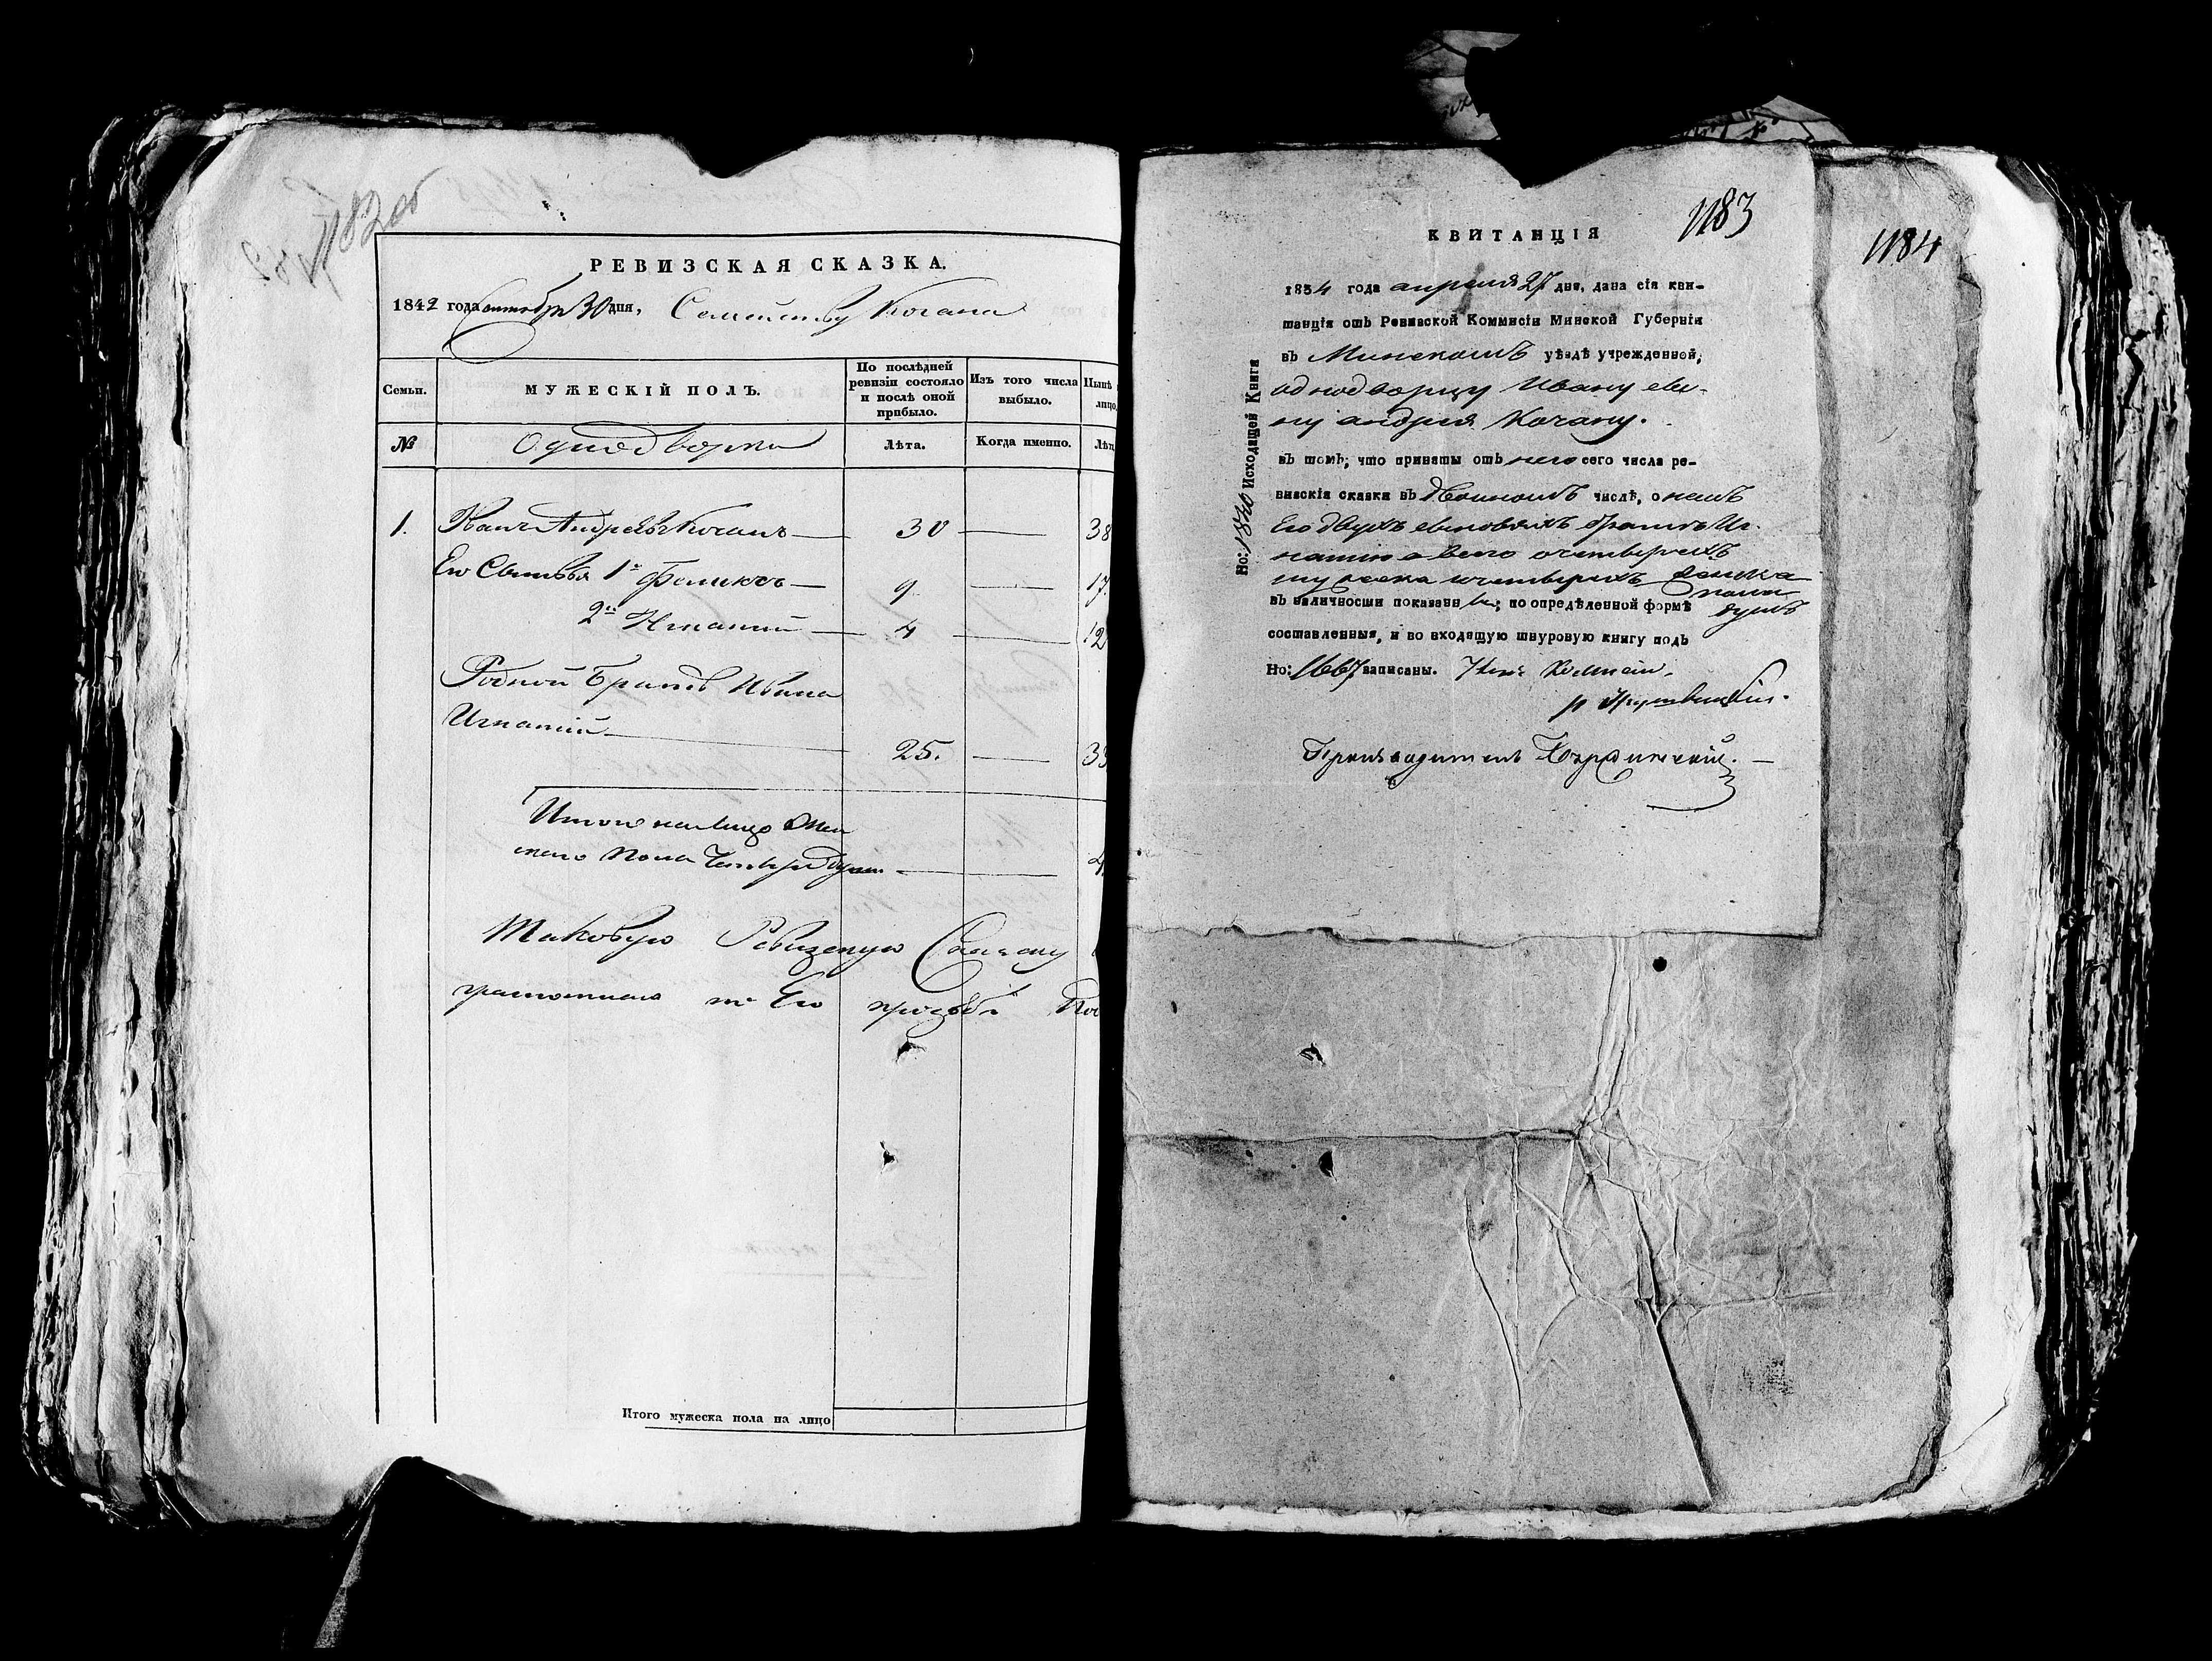 1182 об
РЕВИЗСКАЯ СКАЗКА.
1842 года Сентября 30 дня, Семейству Кочана
Семьи.
МУЖЕСКІЙ ПОЛЪ.
По послѣдней ревизіи состояло и послѣ оной прибыло.
Изъ того числа выбыло.
Нынѣ
лицо
№
Однодворцы
Лѣта.
Когда именно.
Лѣт
1. Иванъ Андреевъ Кочанъ 30 38
Его Сыновья 1й Феликсъ 9 17
2й Игнатій 4 12
Родной Братъ Ивана
Игнатій 25. 33
Итого налицо Муж
скаго Пола Четыре души 4
Таковую Ревизскую Сказку
по Его прозьбѣ
Итого мужеска пола на лицо
1183
КВИТАНЦІЯ
1834 года апреля 27 дня, дана сія кви-
танція отъ Ревизской Коммисіи Минской Губерніи
въ Минскомъ уѣздѣ учрежденной,
однодворцу Ивану сы-
ну андрея Кочану.
въ томъ, что приняты отъ него сего числа ре-
визскія сказки въ двоиномъ числѣ, о немъ
Его двухъ сыновяхъ братѣ Иг-
натіи а всего очетырехъ
мужеска
въ наличности показанны, по опредѣленной формѣ
душъ
составленныя, и во входящую шнуровую книгу подъ
Но: 1667 записаны. Член Комисіи
Производитель
Но: 1840 Исходящей Книги
1184